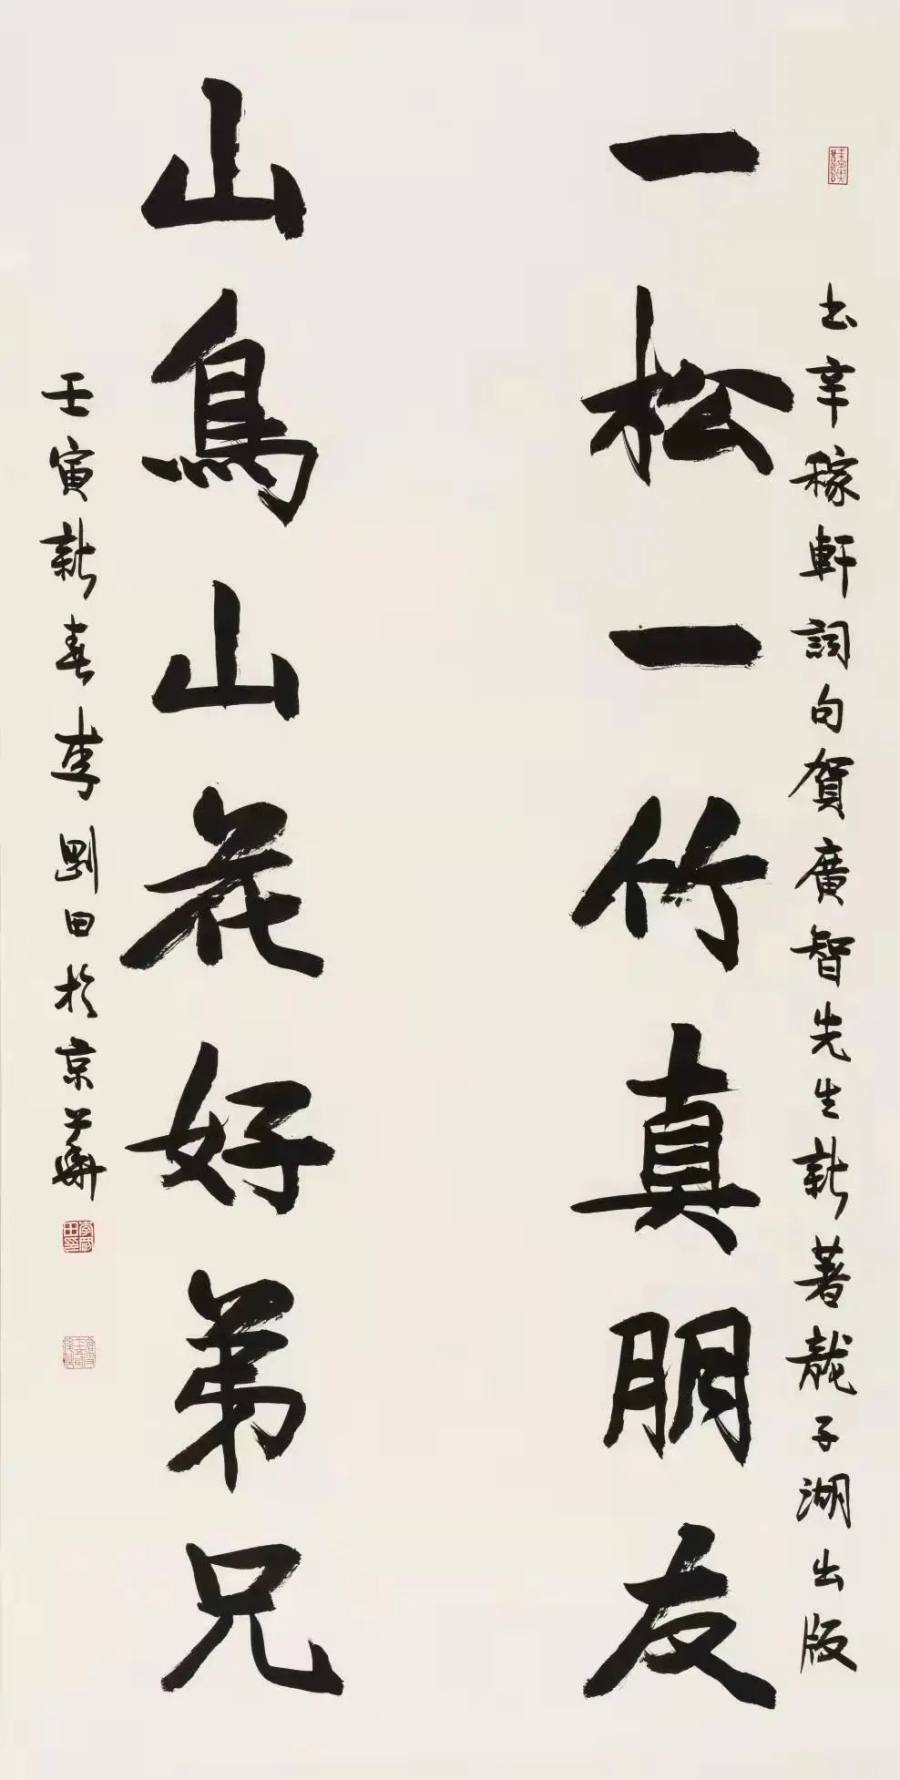 书辛稼軒詞句賀廣智先生新著龍子湖出版
一松一竹真朋友
山鳥山花好弟兄
壬寅新春李剛田於京華
李剛田印